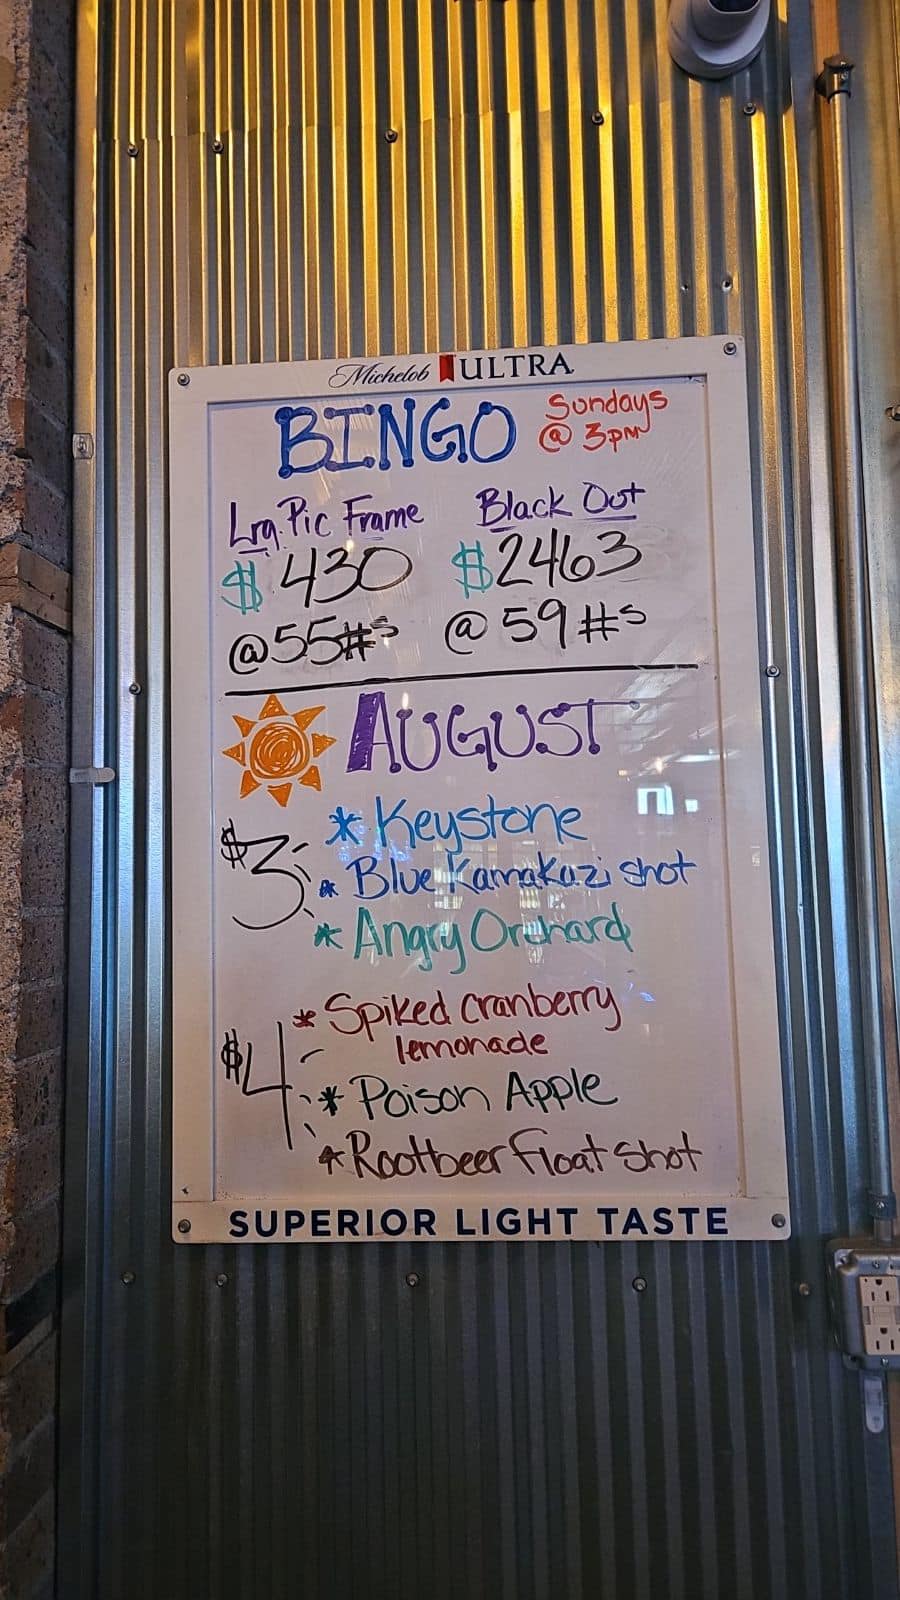 Michelob ULTRA
BINGO Sundays
@ 3pm
Lrg. Pic Frame Black Out
$430 $2463
@55#s @59#s
AUGUST
$3 * Keystone
* Blue Kamakazi shot
* Angry Orchard
$4 * Spiked cranberry
lemonade
* Poison Apple
* Rootbeer Float Shot
SUPERIOR LIGHT TASTE